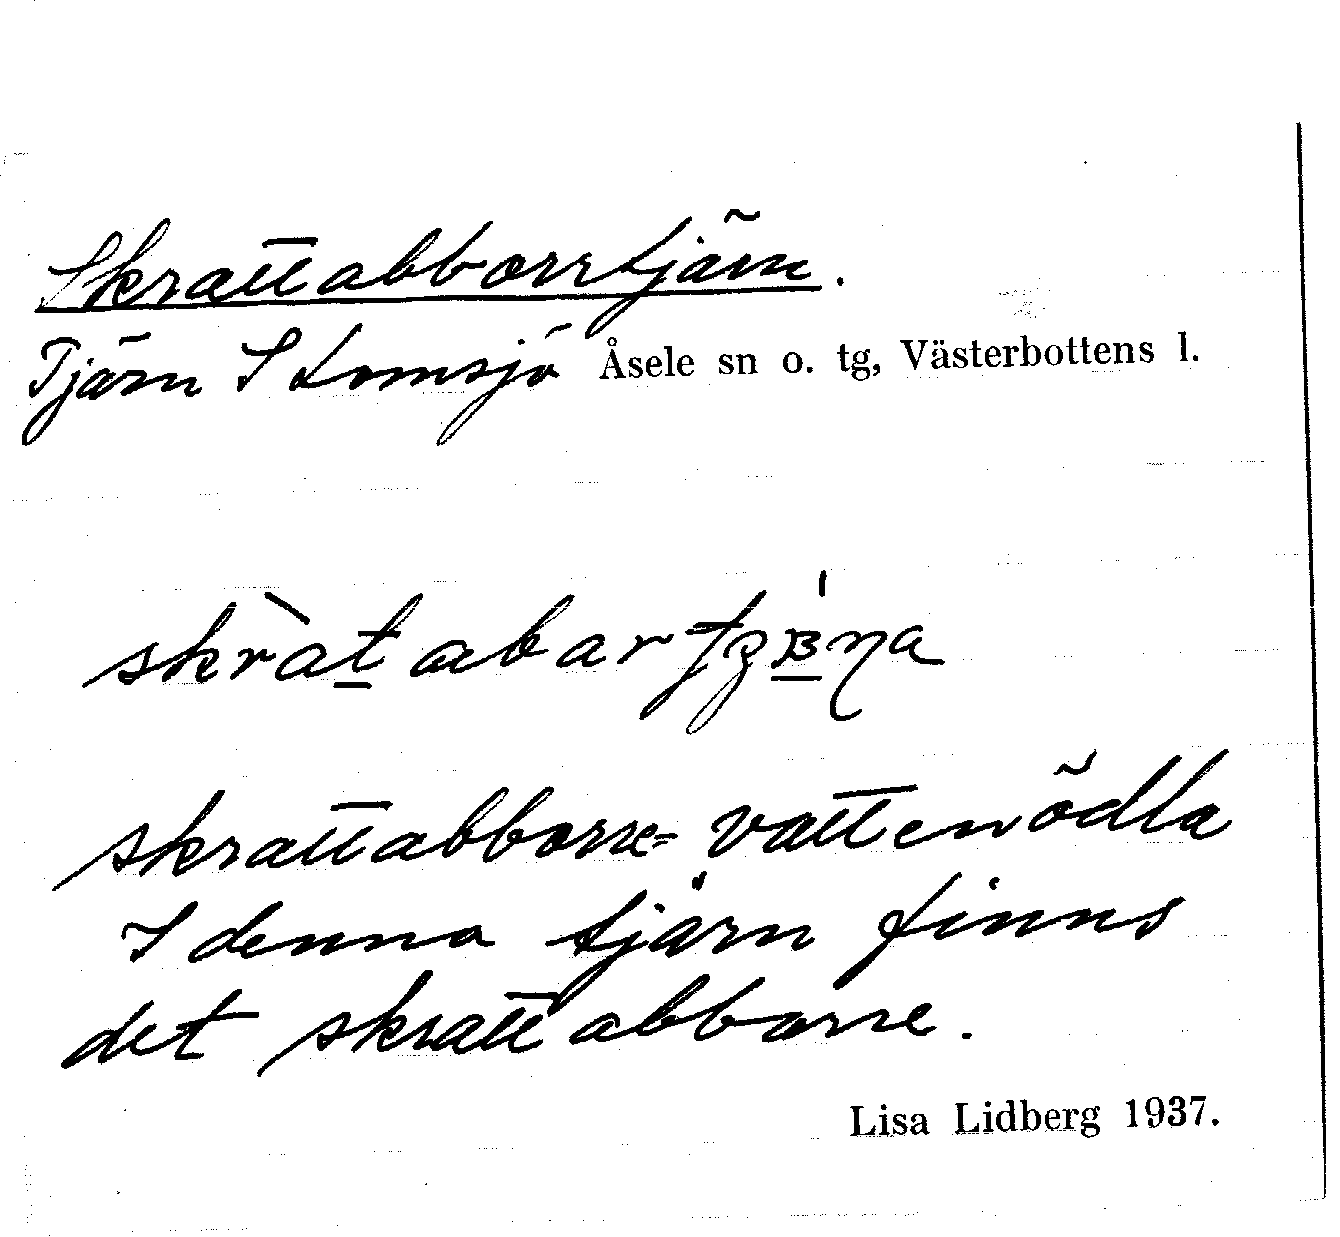 Skrattabborrtjärn.
Tjärn S Lomsjö Åsele sn o. tg, Västerbottens l.
skrattabborre = vattenödla
I denna tjärn finns
det skrattabborre.
Lisa Lidberg 1937.